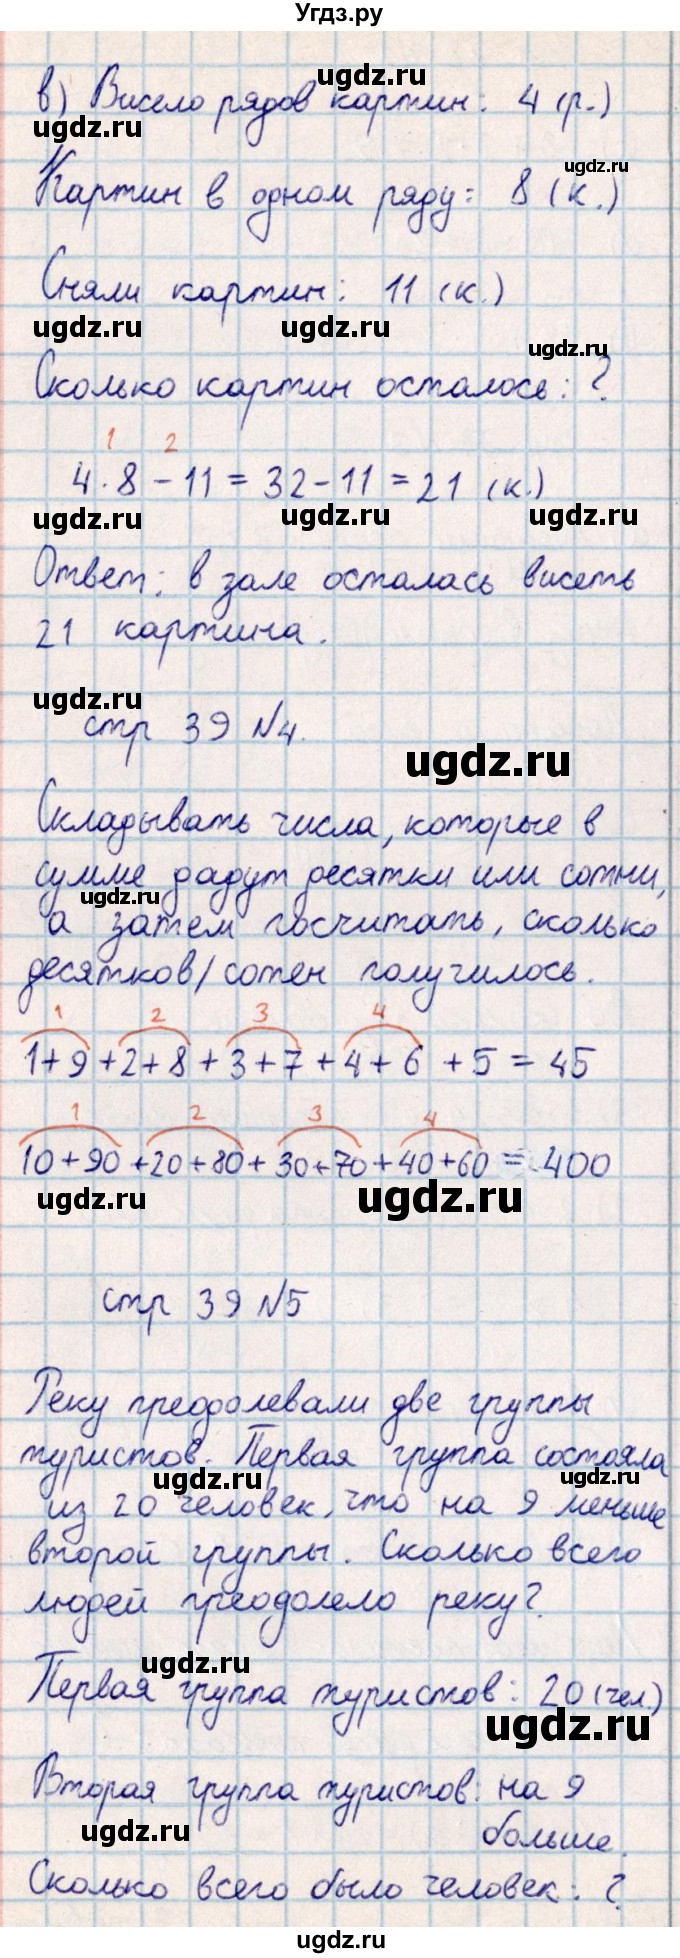 Угдз.ру
ugdz.ru
в) Висело рядов картин: 4 (р.)
ugdz.ru
ugdz.ru
Картин в одном ряду: 8 (к.)
Сняли картин: 11 (к.)
ugdz.ru ugdz.ru
ugdz.ru
Сколько картин осталось: ?
1 2
4 · 8 - 11 = 32 - 11 = 21 (к.)
ugdz.ru ugdz.ru ugdz.ru
Ответ: в зале осталась висеть
21 картина.
ugdz.ru
стр 39 №4.
ugdz.ru
Складывать числа, которые в
сумме дадут десятки или сотни,
ugdz.ru
а затем посчитать, сколько
десятков/сотен получилось.
1 2 3 4
1+9+2+8+3+7+4+6+5=45
1 2 3 4
10+90+20+80+30+70+40+60=400
ugdz.ru ugdz.ru
стр 39 №5
Реку преодолевали две группы
туристов. Первая группа состояла
ugdz.ru ugdz.ru
из 20 человек, что на 9 меньше
второй группы. Сколько всего
людей преодолело реку?
ugdz.ru
Первая группа туристов: 20 (чел.)
ugdz.ru
Вторая группа туристов: на 9
больше.
ugdz.ru
Сколько всего было человек: ?
ugdz.ru